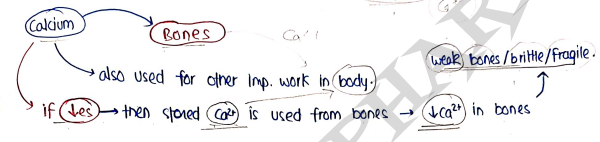 Calcium → Bones
Ca
→ also used for other imp. work in body.
weak bones/brittle/fragile.
→ if ↓es → then stored Ca²⁺ is used from bones → ↓Ca²⁺ in bones
PHAR